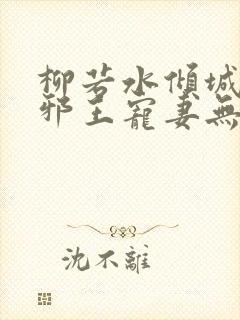 柳若水傾城
邪王寵妻無
沈不離